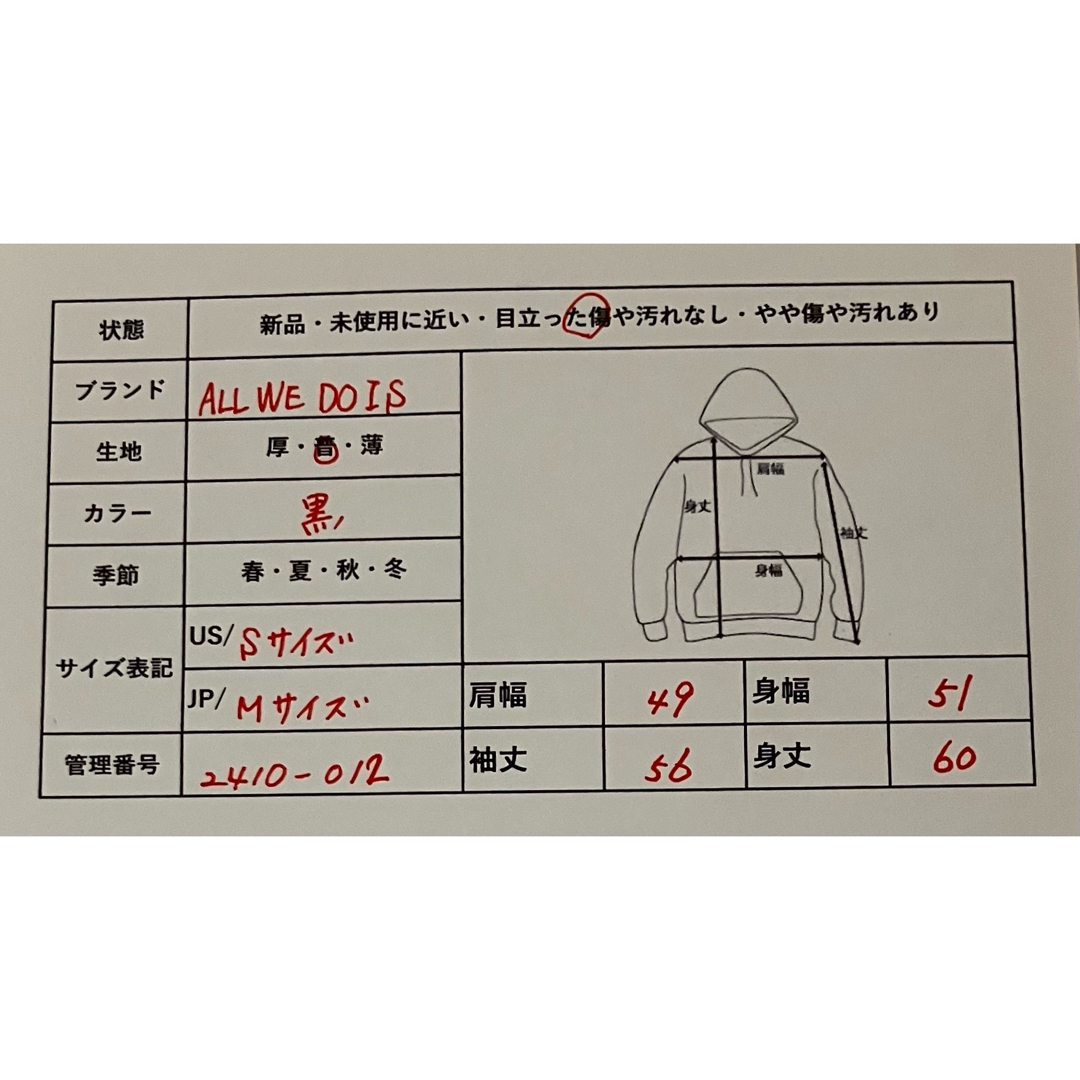 状態 新品・未使用に近い・目立った傷や汚れなし・やや傷や汚れあり
ブランド ALL WE DO IS
生地 厚・普・薄
カラー 黒
季節 春・夏・秋・冬
サイズ表記 US/ Sサイズ
JP/ Mサイズ
管理番号 2410-012
肩幅
身丈
袖丈
身幅
肩幅 49 身幅 51
袖丈 56 身丈 60